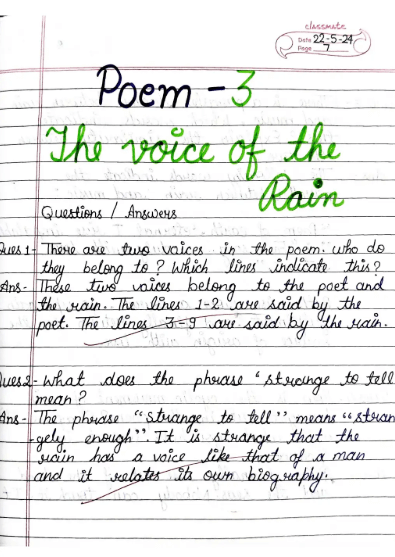 classmate
Date 22-5-24
Page 7
Poem - 3
The voice of the
Rain
Questions / Answers
Ques 1- There are two voices in the poem. who do
they belong to? Which lines indicate this?
Ans- These two voices belong to the poet and
the rain. The lines 1-2 are said by the
poet. The lines 3-9 are said by the rain.
Ques 2- what does the phrase "strange to tell
mean?
Ans- The phrase "strange to tell" means "stran
-gely enough". It is strange that the
rain has a voice like that of a man
and it relates its own biography.